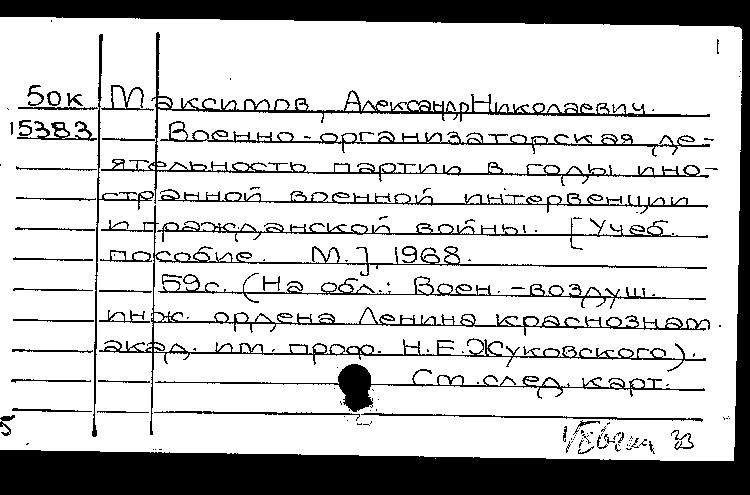 1
50к Максимов, Александр Николаевич.
15383 Военно-организаторская де-
ятельность партии в годы ино-
странной военной интервенции
и гражданской войны. [Учеб.
пособие. М.], 1968.
59с. (На обл.: Воен.-воздуш.
инж. ордена Ленина краснознам.
акад. им. проф. Н.Е.Жуковского).
См. след. карт.
33